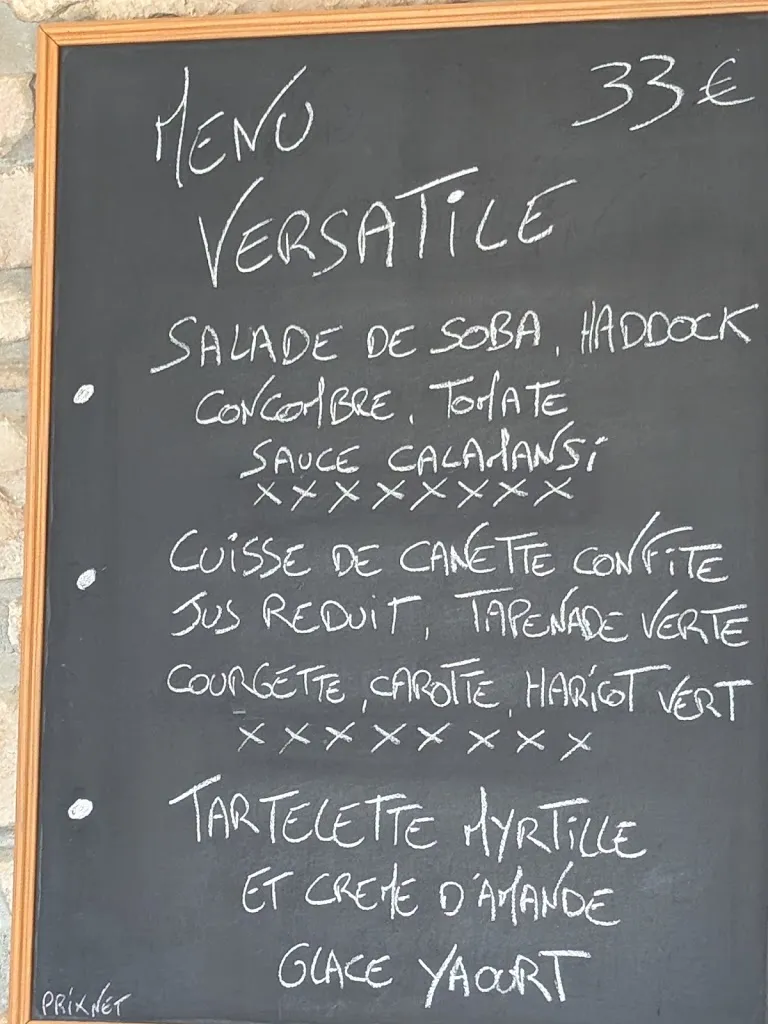 MENU 33€
VERSATiLE
SALADE DE SOBA, HADDOCK
CONCOMBRE, TOMATE
SAUCE CALAMANSi
xxxxxxxx
CUiSSE DE CANETTE CONFITE
JUS REDUiT, TAPENADE VERTE
COURGETTE, CAROTTE, HARiCOT VERT
xxxxxxxx
TARTELETTE MYRTiLLE
ET CREME D'AMANDE
GLACE YAOURT
PRiX NET